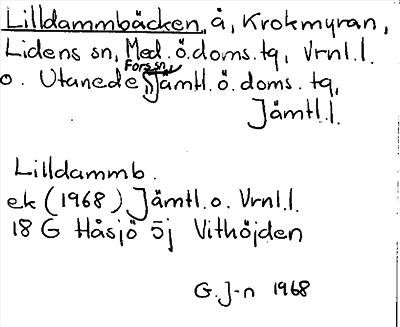 Lilldammbäcken, å, Krokmyran,
Lidens sn, Med. ö. doms. tq, Vrnl.l.
o. Utanede, Fors sn, Jämtl. ö. doms. tq,
Jämtl.l.
Lilldammb.
ek (1968) Jämtl. o. Vrnl.l.
18 G Håsjö 5j Vithöjden
G. J-n 1968